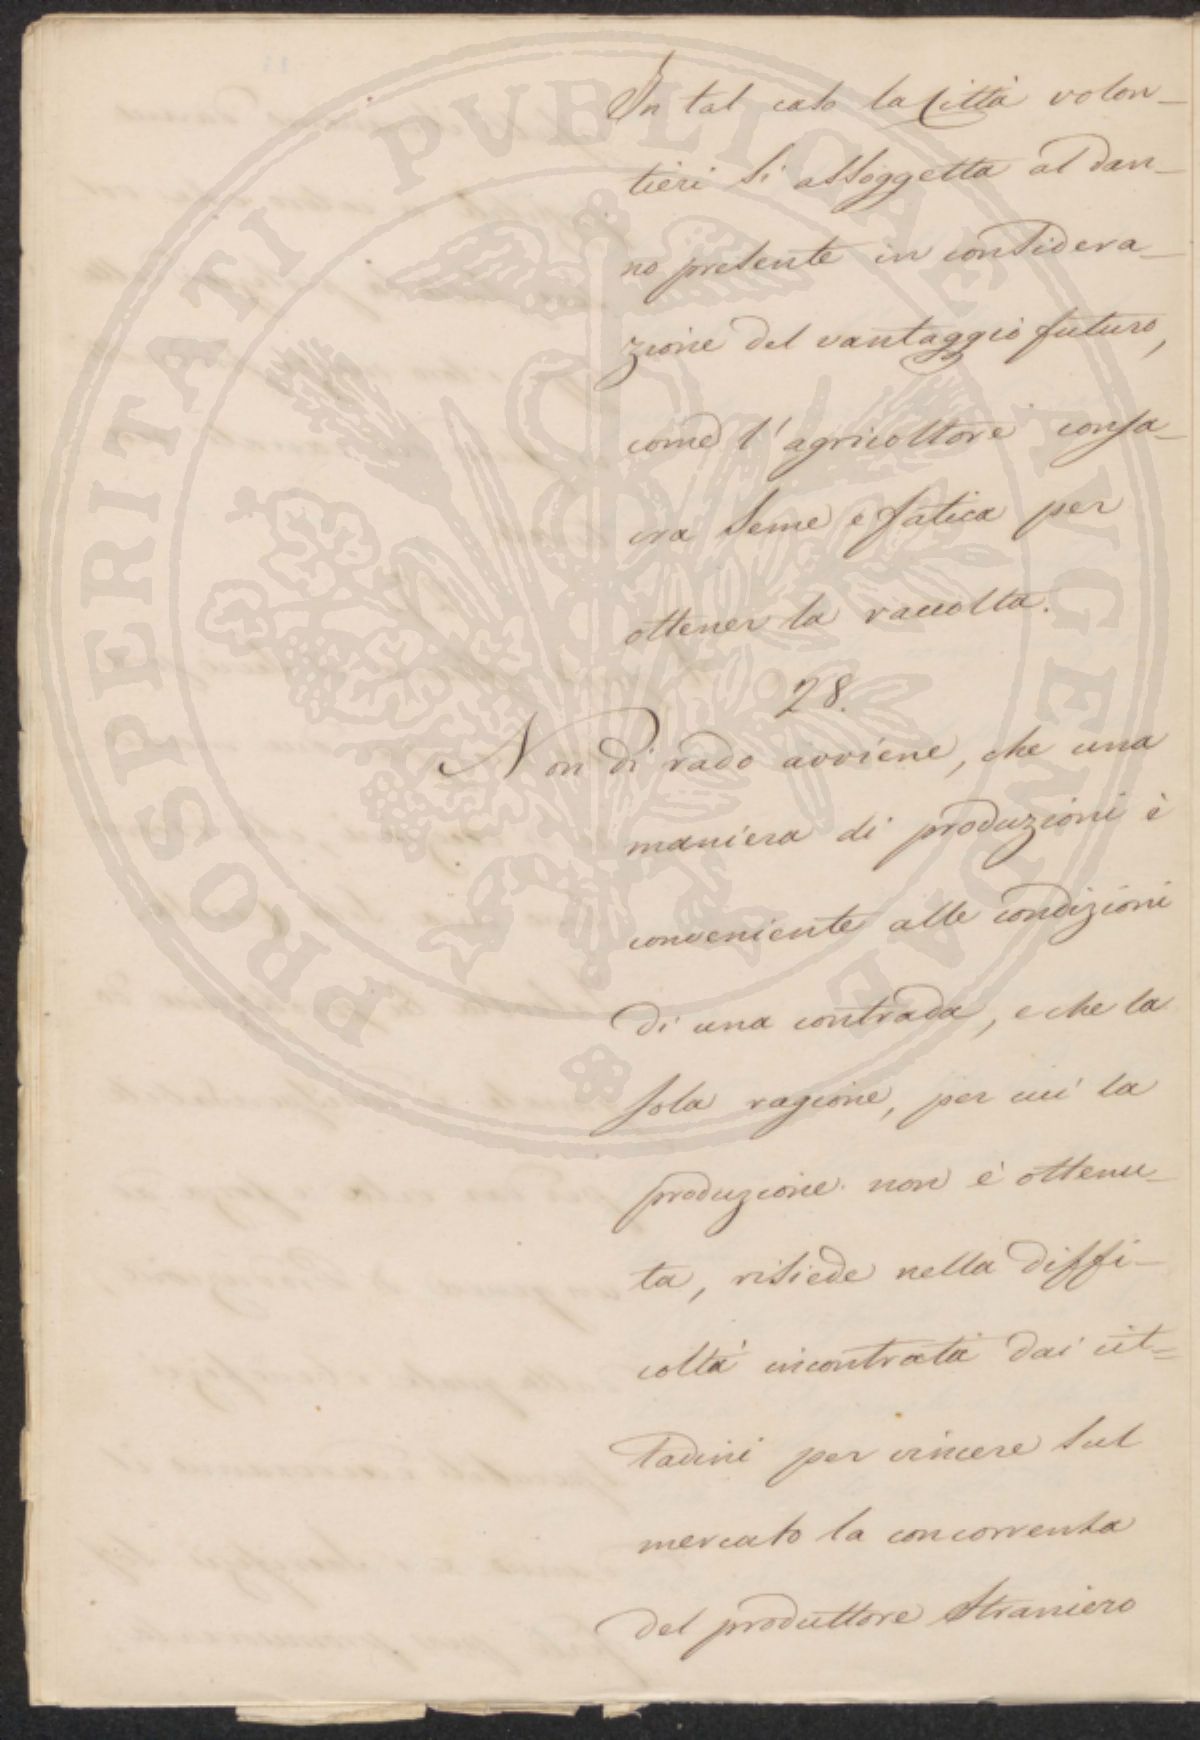 In tal caso la Città volon-
tieri si assoggetta al dan-
no presente in considera-
zione del vantaggio futuro,
come l'agricoltore consa-
cra seme e fatica per
ottener la raccolta.
28.
Non di rado avviene, che una
maniera di produzioni è
conveniente alle condizioni
di una contrada, e che la
sola ragione, per cui la
produzione non è ottenu-
ta, risiede nella diffi-
coltà incontrata dai cit=
tadini per vincere sul
mercato la concorrenza
del produttore straniero
PROSPERITATI PVBLICAE AVGENDAE